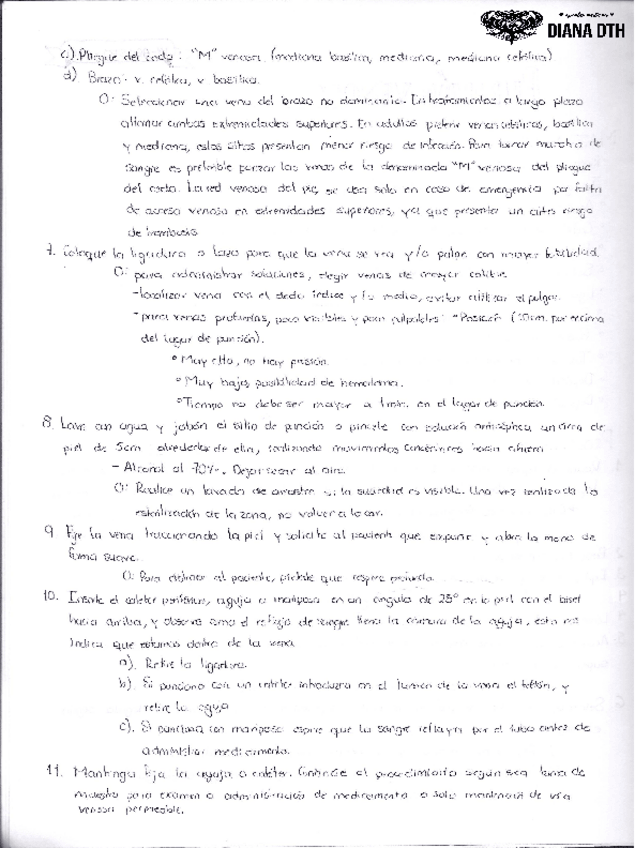 DIANA DTH
c). Pliegue del codo: "M" venosa (mediana basílica, mediana, mediana cefálica)
d) Brazo: v. cefálica, v. basílica.
O: Seleccionar una vena del brazo no dominante. En tratamientos a largo plazo
alternar ambas extremidades superiores. En adultos preferir venas cefálicas, basílica
y mediana, estos sitios presentan menor riesgo de infección. Para tomar muestra de
sangre es preferible puncionar las venas de la denominada "M" venosa del pliegue
del codo. La red venosa del pie, se usa solo en caso de emergencia por falta
de acceso venoso en extremidades superiores, ya que presenta un alto riesgo
de trombosis
7. Coloque la ligadura o lazo para que la vena se vea y/o palpe con mayor facilidad.
O: para administrar soluciones, elegir venas de mayor calibre.
-localizar vena con el dedo índice y/o medio, evitar utilizar el pulgar.
-para venas profundas, poco visibles y poco palpables: "Posición (10cm. por encima
del lugar de punción).
° Muy alta, no hay presión.
° Muy baja posibilidad de hematoma.
° Tiempo no debe ser mayor a 1 min. en el lugar de punción.
8. Lave con agua y jabón el sitio de punción o pincele con solución antiséptica un área de
piel de 5cm alrededor de ella, realizando movimientos concéntricos hacia afuera
- Alcohol al 70%. Dejar secar al aire.
O: Realice un lavado de arrastre si la suciedad es visible. Una vez realizada la
esterilización de la zona, no volver a tocar.
9 Fije la vena traccionando la piel y solicite al paciente que empuñe y abra la mano de
forma suave.
O: Para distraer al paciente, pídale que respire profundo.
10. Inserte el catéter periférico, aguja o mariposa en un ángulo de 25° en la piel con el bisel
hacia arriba, y observe como el reflujo de sangre llena la cámara de la aguja, esto nos
indica que estamos dentro de la vena
a). Retire la ligadura.
b). Si punciono con un catéter introduzca en el lumen de la vena el teflón, y
retire la aguja
c). Si punciona con mariposa espere que la sangre refluya por el tubo antes de
administrar medicamento.
11. Mantenga fija la aguja o catéter. Continúe el procedimiento según sea toma de
muestra para examen o administración de medicamento o solo mantención de vía
venosa permeable.